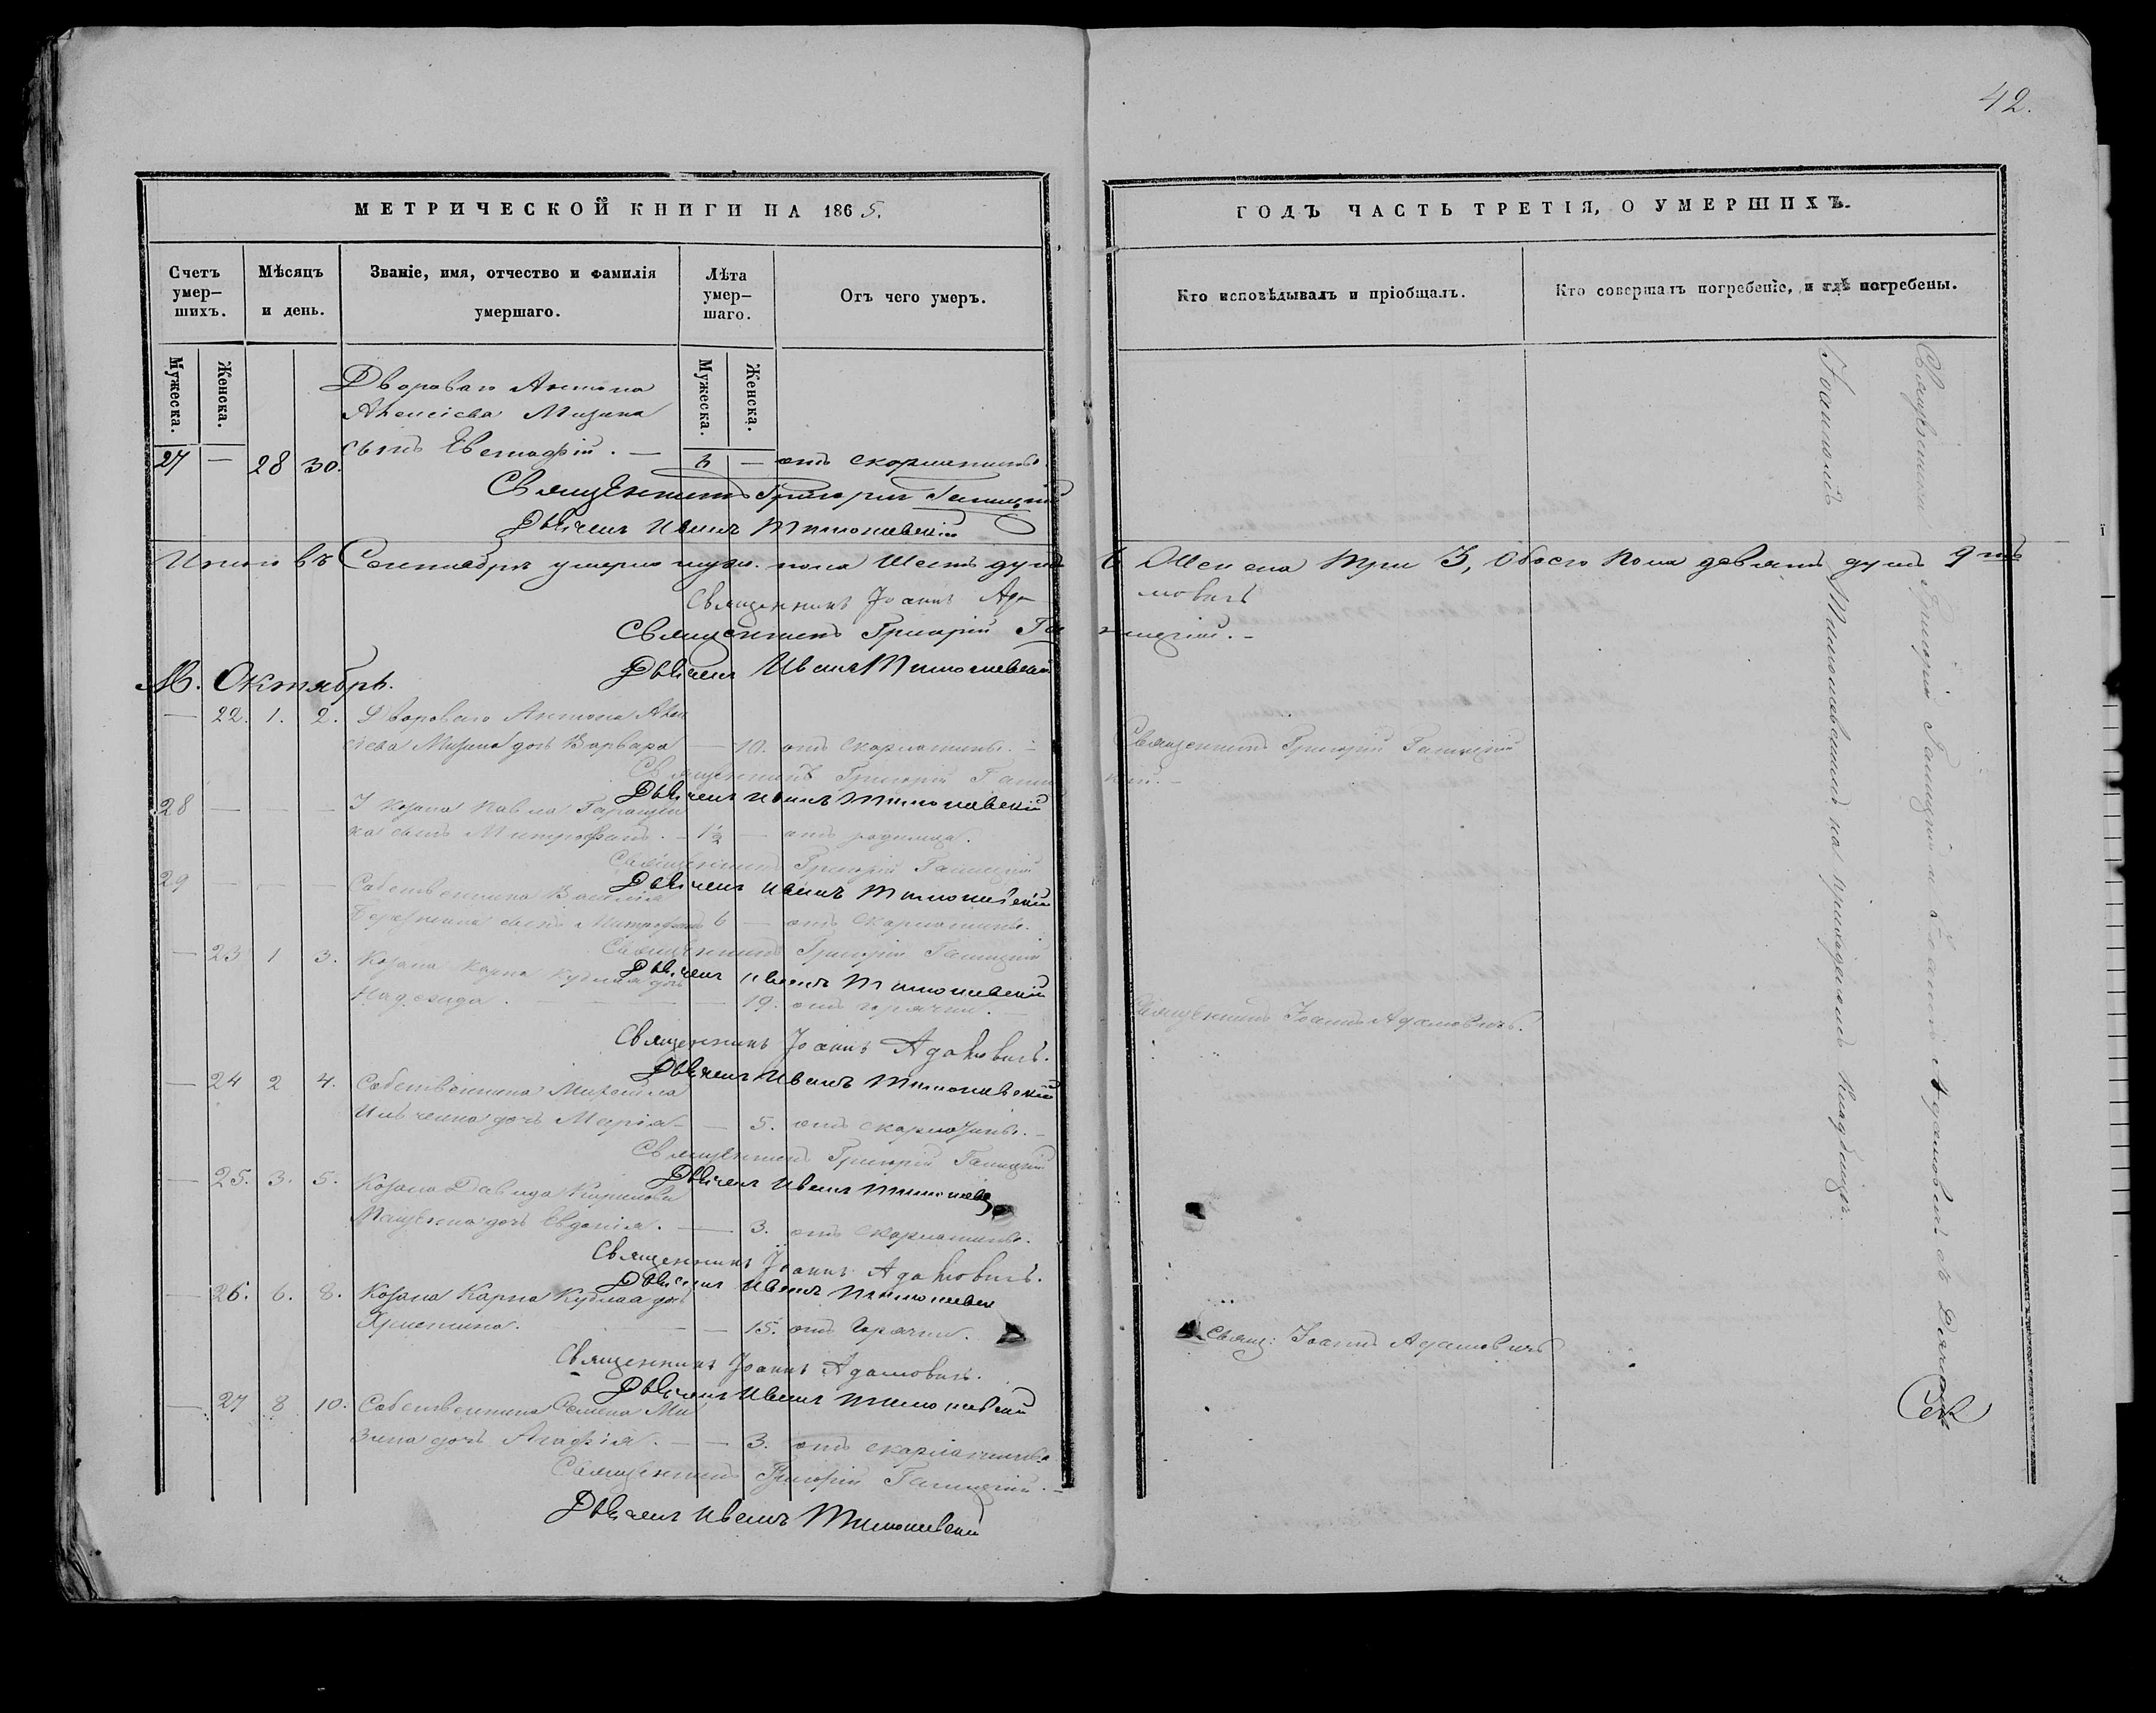 42.
МЕТРИЧЕСКОЙ КНИГИ НА 1865.
Счетъ умер-
шихъ.
Мѣсяцъ
и день.
Званіе, имя, отчество и фамилія
умершаго.
Лѣта
умер-
шаго.
Отъ чего умеръ.
Мужеска.
Женска.
Мужеска.
Женска.
Двороваго Антона
Алексіева Мизина
27 — 28 30. сынъ Евстафій. — 6 — отъ скарлатины.
Священникъ Григорій Галицкій
Дьячекъ Иванъ Тимошевскій
Итого въ Сентябрѣ умерло муж. пола Шесть душъ
Священникъ Іоаннъ Ада
Священникъ Григорій Га
Дьячекъ Иванъ Тимошевскій
М. Октябрь.
— 22. 1. 2. Двороваго Антона Алек
сіева Мизина дочь Варвара — 10. отъ скарлатины. —
Священникъ Григорій Галиц
Дьячекъ Иванъ Тимошевскій
28 — — — Козака Павла
ка сынъ Митрофанъ. — 1½ — отъ родимца.
Священникъ Григорій Галицкій
Дьячекъ Иванъ Тимошевскій
29 — — — Собственника Василія
сынъ Митрофанъ 6 — отъ скарлатины.
Священникъ Григорій Галицкій
Дьячекъ Иванъ Тимошевскій
— 23 1 3. Козака Карпа Кудлая дочь
Надежда. — 19. отъ горячки. —
Священникъ Іоаннъ Адамовичъ.
Дьячекъ Иванъ Тимошевскій
— 24 2 4. Собственника Михаила
Ильченка дочь Марія — — 5. отъ скарлатины. —
Священникъ Григорій Галицкій
Дьячекъ Иванъ Тимошевс
— 25. 3. 5. Козака Давида Кирилова
дочь Евдокія. — 3. отъ скарлатины.
Священникъ Іоаннъ Адамовичъ.
Дьячекъ Иванъ Тимошевск
— 26. 6. 8. Козака Карпа Кудлая дочь
Христина. — — 15. отъ горячки.
Священникъ Іоаннъ Адамовичъ.
Дьячекъ Иванъ Тимошевскій
— 27 8 10. Собственника Семена Ми
зина дочь Агафія. — — 3. отъ скарлатины.
Священникъ Григорій Галицкій. —
Дьячекъ Иванъ Тимошевскій
ГОДЪ ЧАСТЬ ТРЕТІЯ, О УМЕРШИХЪ.
Кто исповѣдывалъ и пріобщалъ.
Кто совершалъ погребеніе, и гдѣ погребены.
6 Женска три 3, обоего пола девять душъ 9
мовичъ
лицкій. —
Священникъ Григорій Галицкій
кій. —
Священникъ Іоаннъ Адамовичъ.
Свящ: Іоаннъ Адамовичъ
Священники Григорій Галицкій и Іоаннъ Адамовичъ съ Дьячкомъ
Іоанномъ Тимошевскимъ на приходскомъ кладбищѣ.